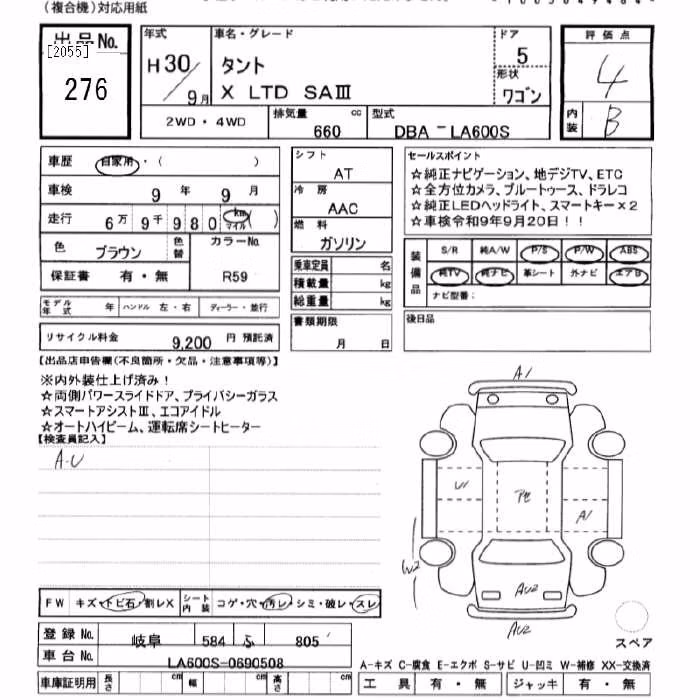 (複合機)対応用紙
出品No.
[2055]
276
年式
H30/9月
車名・グレード
タント
X LTD SAⅢ
ドア
5
形状
ワゴン
評価点
4
内装
B
2WD・4WD
排気量
660
cc
型式
DBA-LA600S
車歴
自家用・( )
車検
9年 9月
走行
6万9千980 km マイル ( )
色
ブラウン
色替
カラーNo.
R59
保証書
有・無
モデル年式
年
ハンドル 左・右
ディーラー・並行
リサイクル料金
9,200 円 預託済
シフト
AT
冷房
AAC
燃料
ガソリン
乗車定員 名
積載量 kg
総重量 kg
書類期限
月 日
セールスポイント
☆純正ナビゲーション、地デジTV、ETC
☆全方位カメラ、ブルートゥース、ドラレコ
☆純正LEDヘッドライト、スマートキー×2
☆車検令和9年9月20日!!
装備品
S/R 純A/W P/S P/W ABS
純TV 純ナビ 革シート 外ナビ エアB
ナビ型番:
後日品
【出品店申告欄(不良箇所・欠品・注意事項等)】
※内外装仕上げ済み!
☆両側パワースライドドア、プライバシーガラス
☆スマートアシストⅢ、エコアイドル
☆オートハイビーム、運転席シートヒーター
【検査員記入】
A-U
A1
U1
A1
W2
AU2
AU2
スペア
FW キズ・トビ石・割レX
シート内装 コゲ・穴・汚レ・シミ・破レ・スレ
登録No. 岐阜 584 ふ 805
車台No. LA600S-0690508
車庫証明用 長さ cm 幅 cm 高さ cm
A-キズ C-腐食 E-エクボ S-サビ U-凹ミ W-補修 XX-交換済
工具 有・無 ジャッキ 有・無